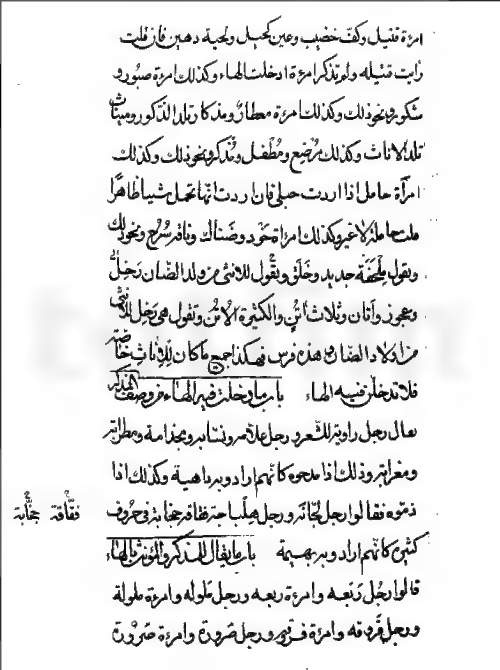 امرءة قتيل وكف خضيب وعين كحيل ولحية دهين فان قلت
رايت قتيلة ولم تذكر امرءة ادخلت الهاء وكذلك امرءة صبور و
شكور ونحو ذلك وكذلك امرءة معطار ومذكار تلد الذكور وميناث
تلد الاناث وكذلك مُرضِع ومُطْفِل ومُذكر ونحو ذلك وكذلك
امرأة حامل اذا اردت حبلى فان اردت انها تحمل شيئا ظاهرًا
قلت حاملة لا غير وكذلك امراة خَود وضناك وناقة سُرُح ونحو ذلك
وتقول مِلْحَفَة جديد وخَلَق وتقول للانثى من ولد الضان رَخِل
وعجوز واتان وثلاث اُتُن والكثيرة الاُتُن وتقول هي رَخِل للانثى
من اولاد الضان وهذه فرس فهكذا جميع ما كان للاناث خاصة
فلا تدخلن فيه الهاء باب ما دخلت فيه الهاء من وصف المذكر
تقال رجل راوية للشعر ورجل علامة ونسابة ومجذامة ومطرابة
ومعزابة وذلك اذا مدحوه كانهم ارادوا به داهية وكذلك اذا
ذموه فقالوا رجل لحّانة ورجل هِلْباجة فقاقة جخابة في حروف
فقّاقة جخّابة
كثيرة كانهم ارادوا به بهيمة باب ما يقال للمذكر والمؤنث بالهاء
قالوا رجُل رَبعَه وامرءة ربعه ورجل مَلولة وامرءة ملولة
ورجل فَروقه وامرءة فروقه ورجل صَرورة وامرءة صَرورة